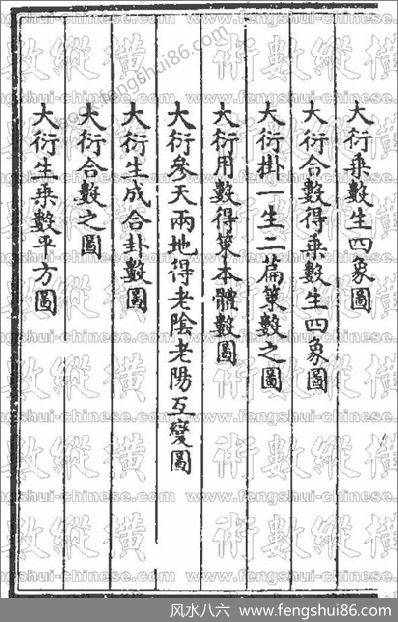 大衍乗數生四象圖
大衍合數得乗數生四象圖
大衍掛一生二篇策數之圖
大衍用數得策本體數圖
大衍參天兩地得老陰老陽互變圖
大衍生成合卦數圖
大衍合數之圖
大衍生乗數平方圖
橫縱數術
www.fengshui-chinese.com
風水八六 www.fengshui86.com